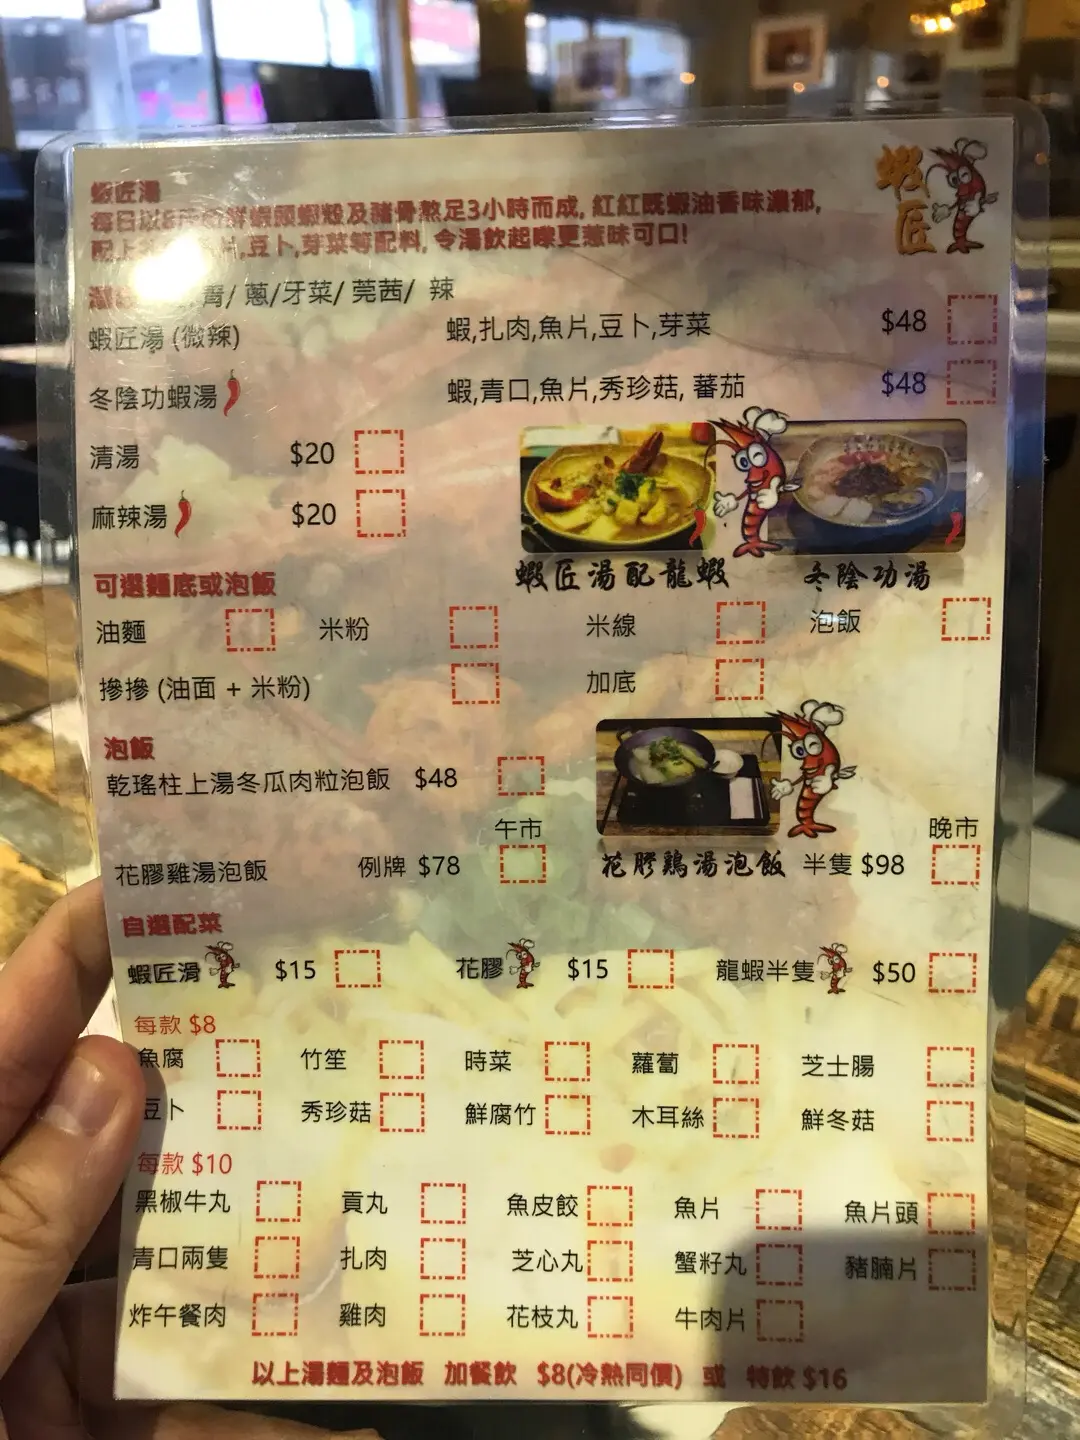 蝦匠
蝦匠湯
每日以 新鮮蝦頭蝦殼及豬骨熬足3小時而成, 紅紅既蝦油香味濃郁,
配上 片,豆卜,芽菜等配料, 令湯飲起嚟更惹味可口!
青/ 蔥/牙菜/ 莞茜/ 辣
蝦匠湯 (微辣) 蝦,扎肉,魚片,豆卜,芽菜 $48
冬陰功蝦湯 蝦,青口,魚片,秀珍菇, 蕃茄 $48
清湯 $20
麻辣湯 $20
蝦匠湯配龍蝦 冬陰功湯
可選麵底或泡飯
油麵 米粉 米線 泡飯
摻摻 (油面 + 米粉) 加底
泡飯
乾瑤柱上湯冬瓜肉粒泡飯 $48
午市 晚市
花膠雞湯泡飯 例牌 $78 花膠鷄湯泡飯 半隻 $98
自選配菜
蝦匠滑 $15 花膠 $15 龍蝦半隻 $50
每款 $8
魚腐 竹笙 時菜 蘿蔔 芝士腸
豆卜 秀珍菇 鮮腐竹 木耳絲 鮮冬菇
每款 $10
黑椒牛丸 貢丸 魚皮餃 魚片 魚片頭
青口兩隻 扎肉 芝心丸 蟹籽丸 豬腩片
炸午餐肉 雞肉 花枝丸 牛肉片
以上湯麵及泡飯 加餐飲 $8(冷熱同價) 或 特飲 $16